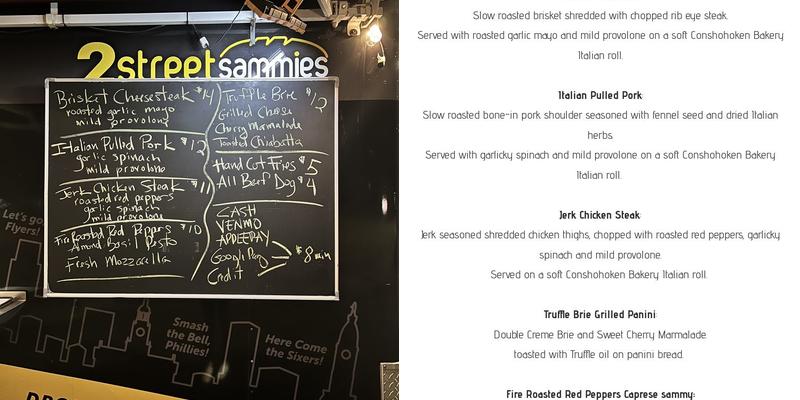 2streetsammies
Brisket Cheesesteak $14
roasted garlic mayo
mild provolone
Italian Pulled Pork $12
garlic spinach
mild provolone
Jerk Chicken Steak $11
roasted red peppers
garlic spinach
mild provolone
Fire Roasted Red Peppers $10
Almond Basil Pesto
Fresh Mozzarella
Truffle Brie $12
Grilled Cheese
Cherry Marmalade
Toasted Chiabatta
Hand Cut Fries $5
All Beef Dog $4
CASH
VENMO
APPLEPAY
Google Pay
Credit
$8 min
Let's go
Flyers!
Smash
the Bell,
Phillies!
Here Come
the Sixers!
Slow roasted brisket shredded with chopped rib eye steak.
Served with roasted garlic mayo and mild provolone on a soft Conshohoken Bakery
Italian roll.
Italian Pulled Pork
Slow roasted bone-in pork shoulder seasoned with fennel seed and dried Italian
herbs.
Served with garlicky spinach and mild provolone on a soft Conshohoken Bakery
Italian roll.
Jerk Chicken Steak:
Jerk seasoned shredded chicken thighs, chopped with roasted red peppers, garlicky
spinach and mild provolone.
Served on a soft Conshohoken Bakery Italian roll.
Truffle Brie Grilled Panini:
Double Creme Brie and Sweet Cherry Marmalade
toasted with Truffle oil on panini bread.
Fire Roasted Red Peppers Caprese sammy: